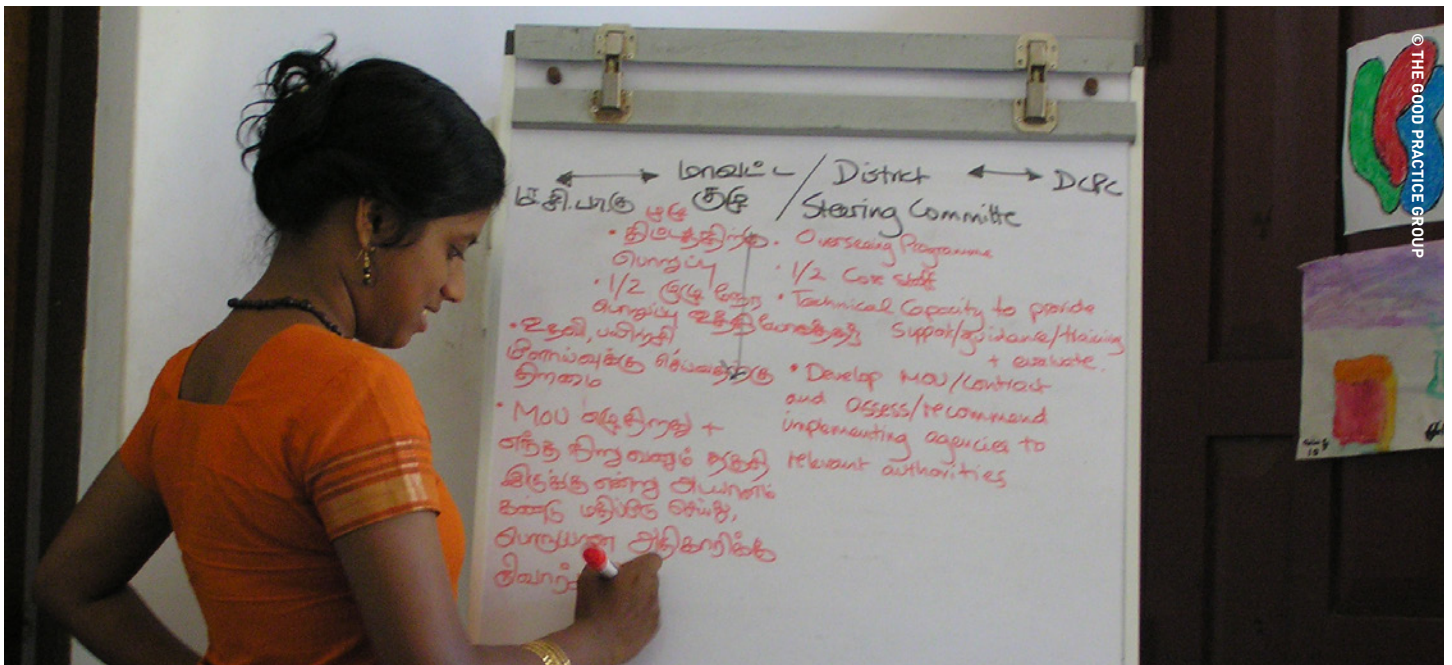 மாவட்ட / District ↔ DCPC
குழு / Steering Committe
• திட்டத்திற்கு
பொறுப்பு
• 1/2 குழு
• உதவி, பயிற்சி
மீளாய்வுக்கு செய்வதற்கு
திறமை
• MOU எழுதிறது +
எந்த நிறுவனம் தகுதி
இருக்கு என்று அடயாளம்
கண்டு மதிப்பீடு செய்து,
பொறுப்பான அதிகாரிக்கு
• Overseeing Programme
• 1/2 Core staff
• Technical Capacity to provide
Support/guidance/training
+ evaluate.
• Develop MOU/Contract
and assess/recommend
implementing agencies to
relevant authorities
© THE GOOD PRACTICE GROUP